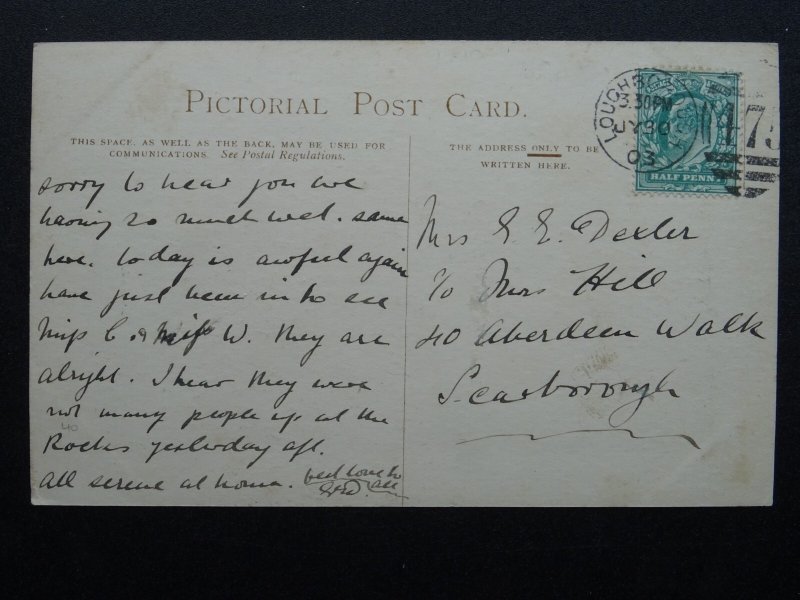 PICTORIAL POST CARD.
THIS SPACE, AS WELL AS THE BACK, MAY BE USED FOR
COMMUNICATIONS. See Postal Regulations.
THE ADDRESS ONLY TO BE
WRITTEN HERE.
LOUGHBORO
3.30PM
JY 30
03
HALF PENNY
sorry to hear you are
having so much wet. same
here. today is awful again
have just been in to see
Miss C & Miss W. they are
alright. I hear they were
not many people up at the
Rocks yesterday aft.
all serene at home. best love to
all
40
Mrs E. E. Dexler
c/o Mrs Hill
40 Aberdeen Walk
Scarborough